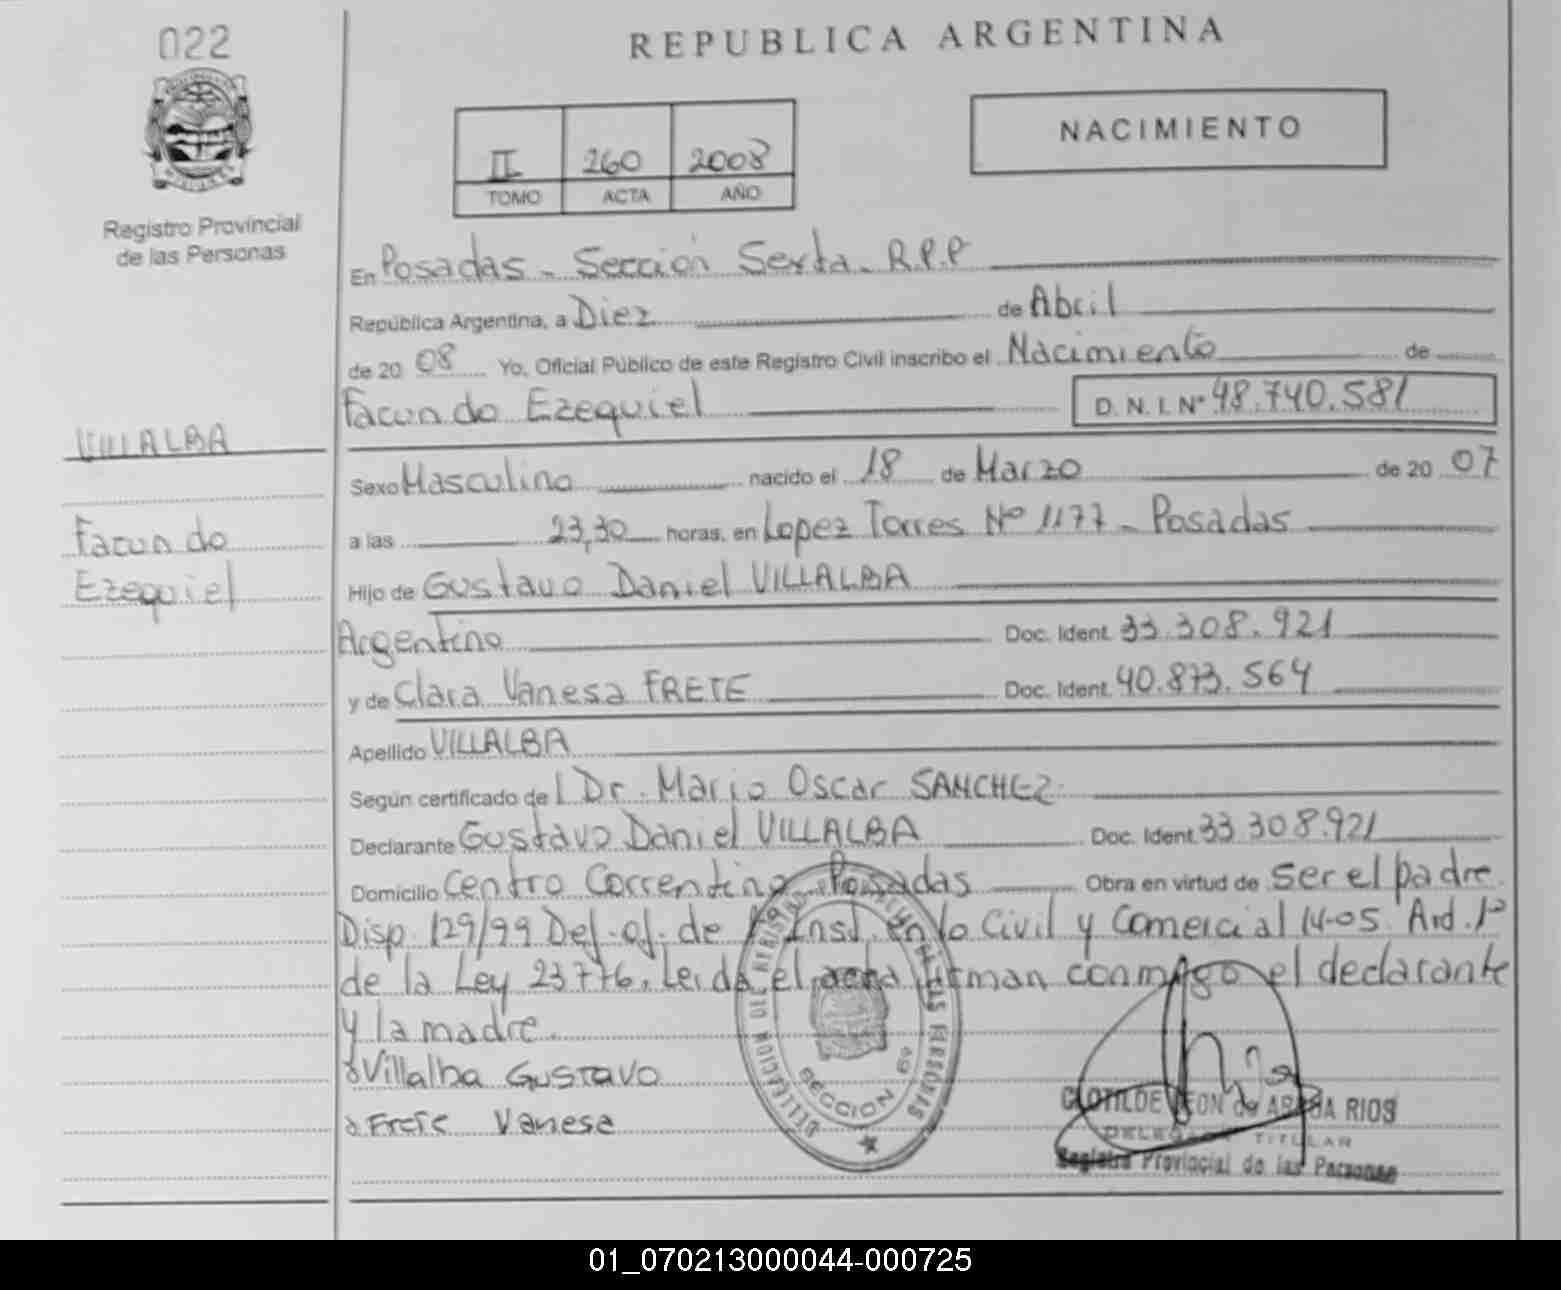 022
REPUBLICA ARGENTINA
NACIMIENTO
II 260 2008
TOMO ACTA AÑO
Registro Provincial
de las Personas
En Posadas - Sección Sexta - R.P.P
República Argentina, a Diez de Abril
de 20 08 Yo, Oficial Público de este Registro Civil inscribo el Nacimiento de
Facundo Ezequiel D. N. I. Nº 48.740.581
VILLALBA
Facundo
Ezequiel
Sexo Masculino nacido el 18 de Marzo de 20 07
a las 23,30 horas, en Lopez Torres Nº 1177 - Posadas
Hijo de Gustavo Daniel VILLALBA
Argentino Doc. Ident. 33.308.921
y de Clara Vanesa FRETE Doc. Ident. 40.873.564
Apellido VILLALBA
Según certificado de l Dr. Mario Oscar SANCHEZ
Declarante Gustavo Daniel VILLALBA Doc. Ident. 33.308.921
Domicilio Centro Correntino - Posadas Obra en virtud de Ser el padre.
Disp. 129/99 Def. of. de Inst. en lo Civil y Comercial 14-05. Ard. 1º
de la Ley 23776. Leida el acta firman conmigo el declarante
y la madre.
Villalba GUSTAVO
Frete Vanesa
DELEGACION DEL REGISTRO DE LAS PERSONAS
SECCION 6º
CLOTILDE LEON de ARRUA RIOS
DELEGADA TITULAR
Registro Provincial de las Personas
01_070213000044-000725